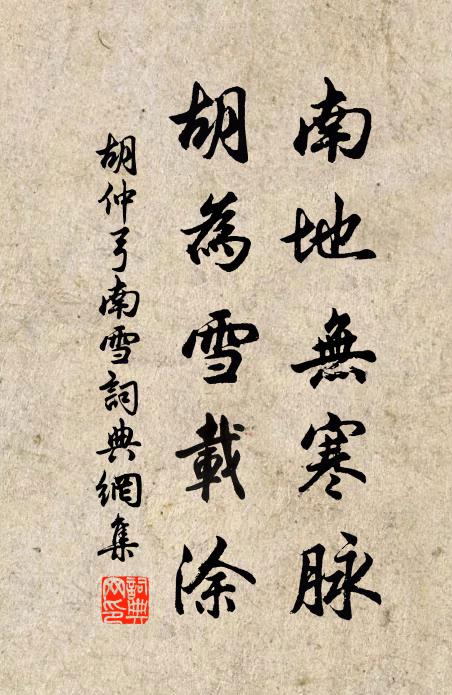 南地無寒脉
胡為雪載涂
胡仲弓南雪詞典網集
詞典网印